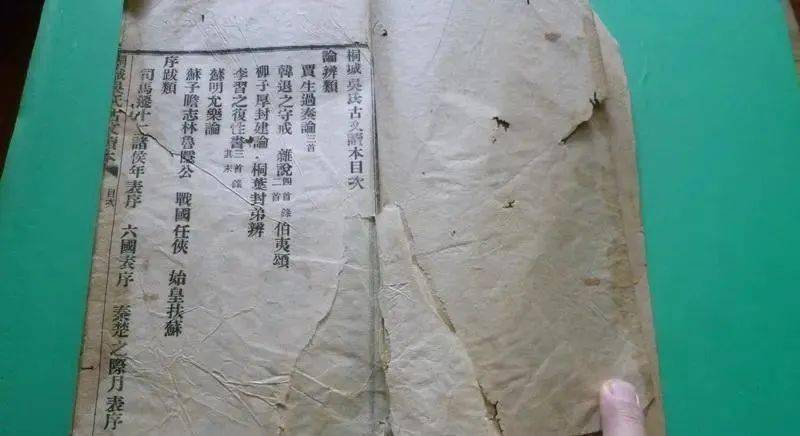 桐城吳氏古文讀本目次
論辨類
賈生過秦論三首
韓退之守戒 雜說四首錄二首 伯夷頌
柳子厚封建論 桐葉封弟辨
李習之復性書三首錄其末
蘇明允樂論
蘇子瞻志林魯隱公 戰國任俠 始皇扶蘇
序跋類
司馬遷十二諸侯年表序 六國表序 秦楚之際月表序
桐城吳氏古文讀本 目次